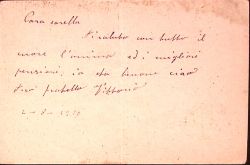 Cara sorella
Ti saluto con tutto il
cuore l'anima ed i migliori
pensieri, io sto benone ciao
tuo fratello Vittorio